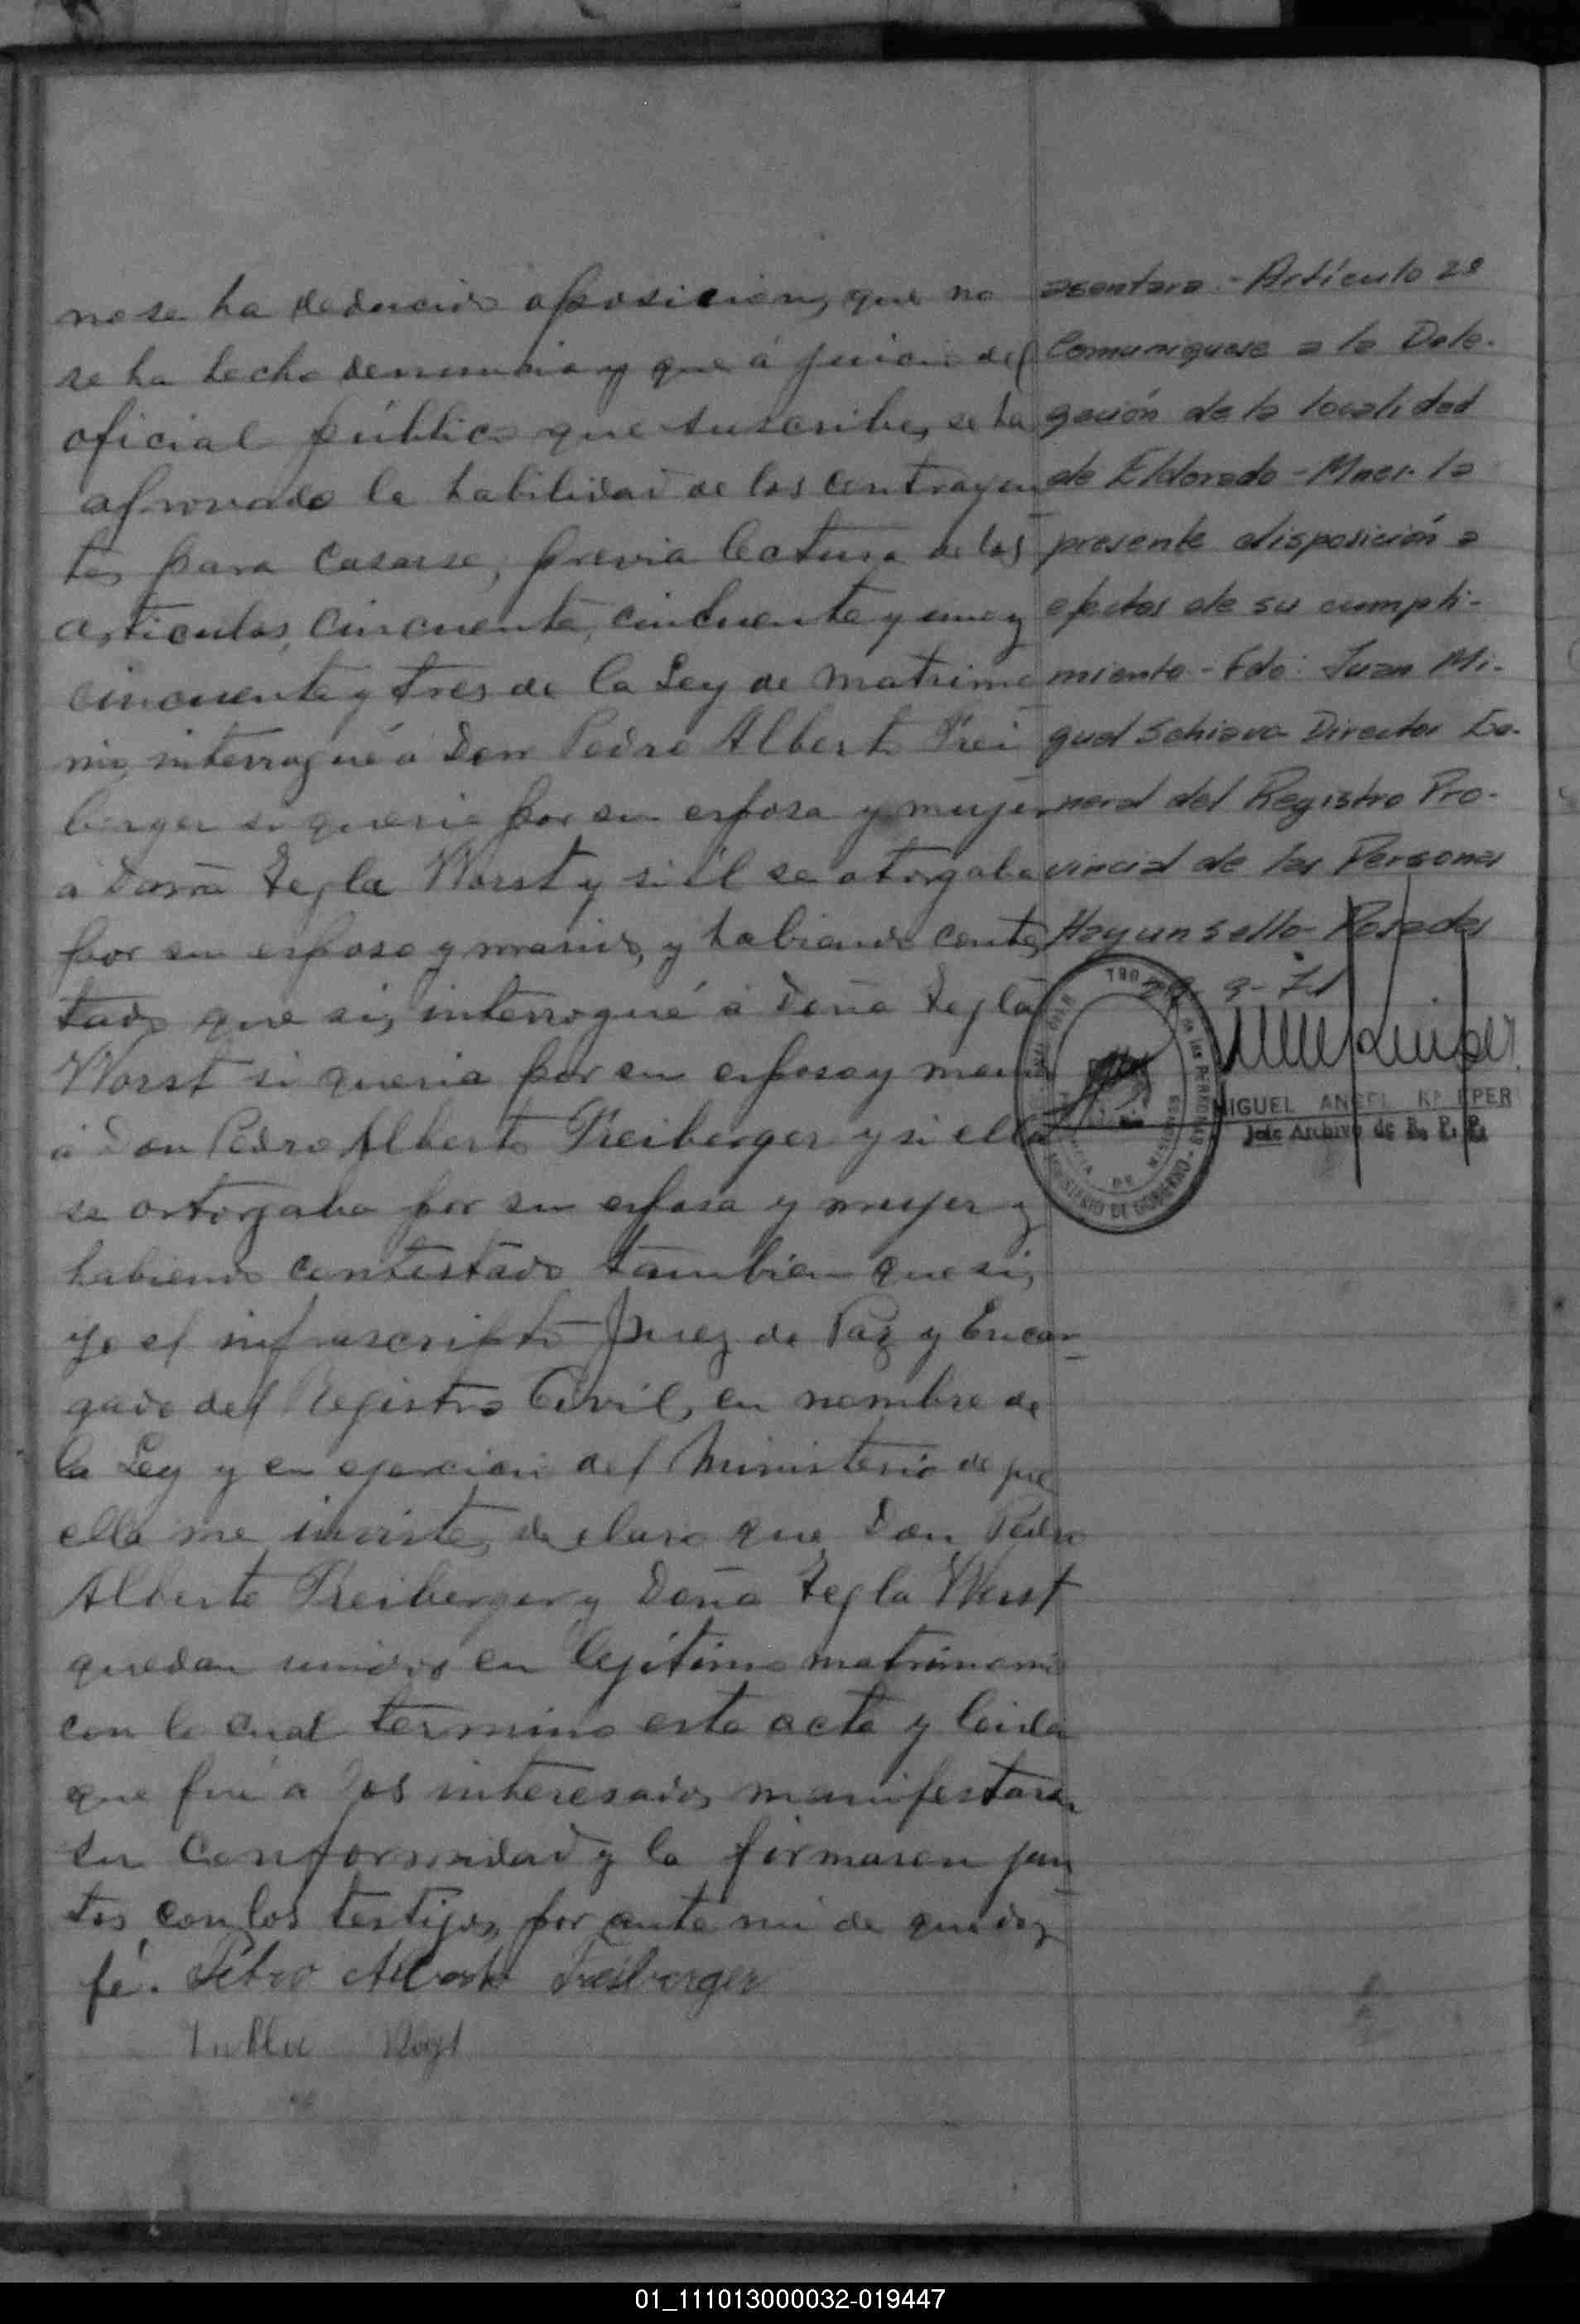 no se ha deducido oposicion, que no
se ha hecho denuncia y que á juicio del
oficial público que suscribe, se ha
aprovado la habilidad de los contrayen
tes para casarse, previa lectura de los
articulos, cincuenta, cincuenta y uno y
cincuenta y tres de la Ley de matrimo
nio, interrogué á Don Pedro Alberto Frei
berger si queria por su esposa y mujer
a Doña Tegla Worst y si él se otorgaba
por su esposo y marido, y habiendo contes
tado que si, interrogué á Doña Tegla
Worst si queria por su esposo y marido
á Don Pedro Alberto Freiberger y si ella
se ortorgaba por su esposa y mujer y
habiendo contestado tambien que si,
yo el infrascripto Juez de Paz y Encar
gado del Registro Civil, en nombre de
la Ley y en ejercicio del Ministerio de que
ella me inviste, declaro que Don Pedro
Alberto Freiberger y Doña Tegla Worst
quedan unidos en legítimo matrimonio
con lo cual termino esta acta y leida
que fué a los interesados, manifestaron
su conformidad y la firmaron jun
tos con los testigos, por ante mi de que doy
fé. Pedro Alberto Freiberger
asentara.- Artículo 2º
Comuniquese a la Dele-
gación de la localidad
de Eldorado - Mnes. la
presente disposición a
efectos de su cumpli-
miento - Fdo: Juan Mi-
guel Schiavo Director Ge-
neral del Registro Pro-
vincial de las Personas
Hay un sello - Posadas
9-71
MIGUEL ANGEL
Jefe Archivo de R. P. P.
de las PERSONAS
MINISTERIO DE GOBIERNO
PROVINCIA DE MISIONES
01_111013000032-019447